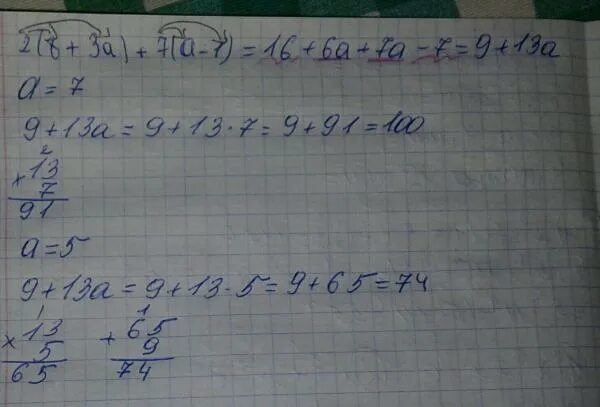 2(8 + 3a) + 7(a - 1) = 16 + 6a + 7a - 7 = 9 + 13a
a = 7
9 + 13a = 9 + 13 · 7 = 9 + 91 = 100
2
× 13
7
91
a = 5
9 + 13a = 9 + 13 · 5 = 9 + 65 = 74
1 1
× 13 + 65
5 9
65 74